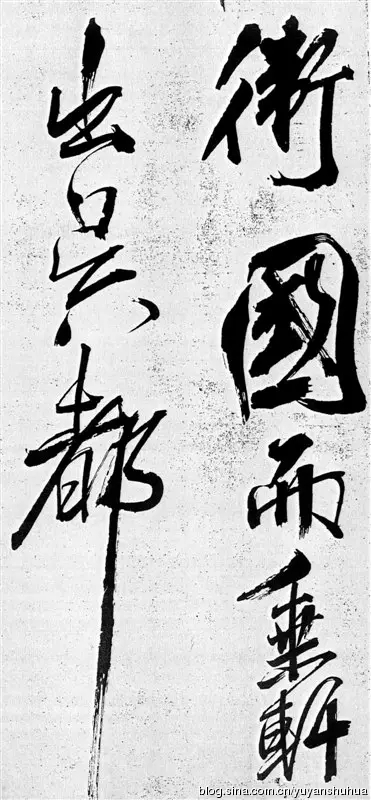 衛國而乗軒
出吴都
blog.sina.com.cn/yuyanshuhua